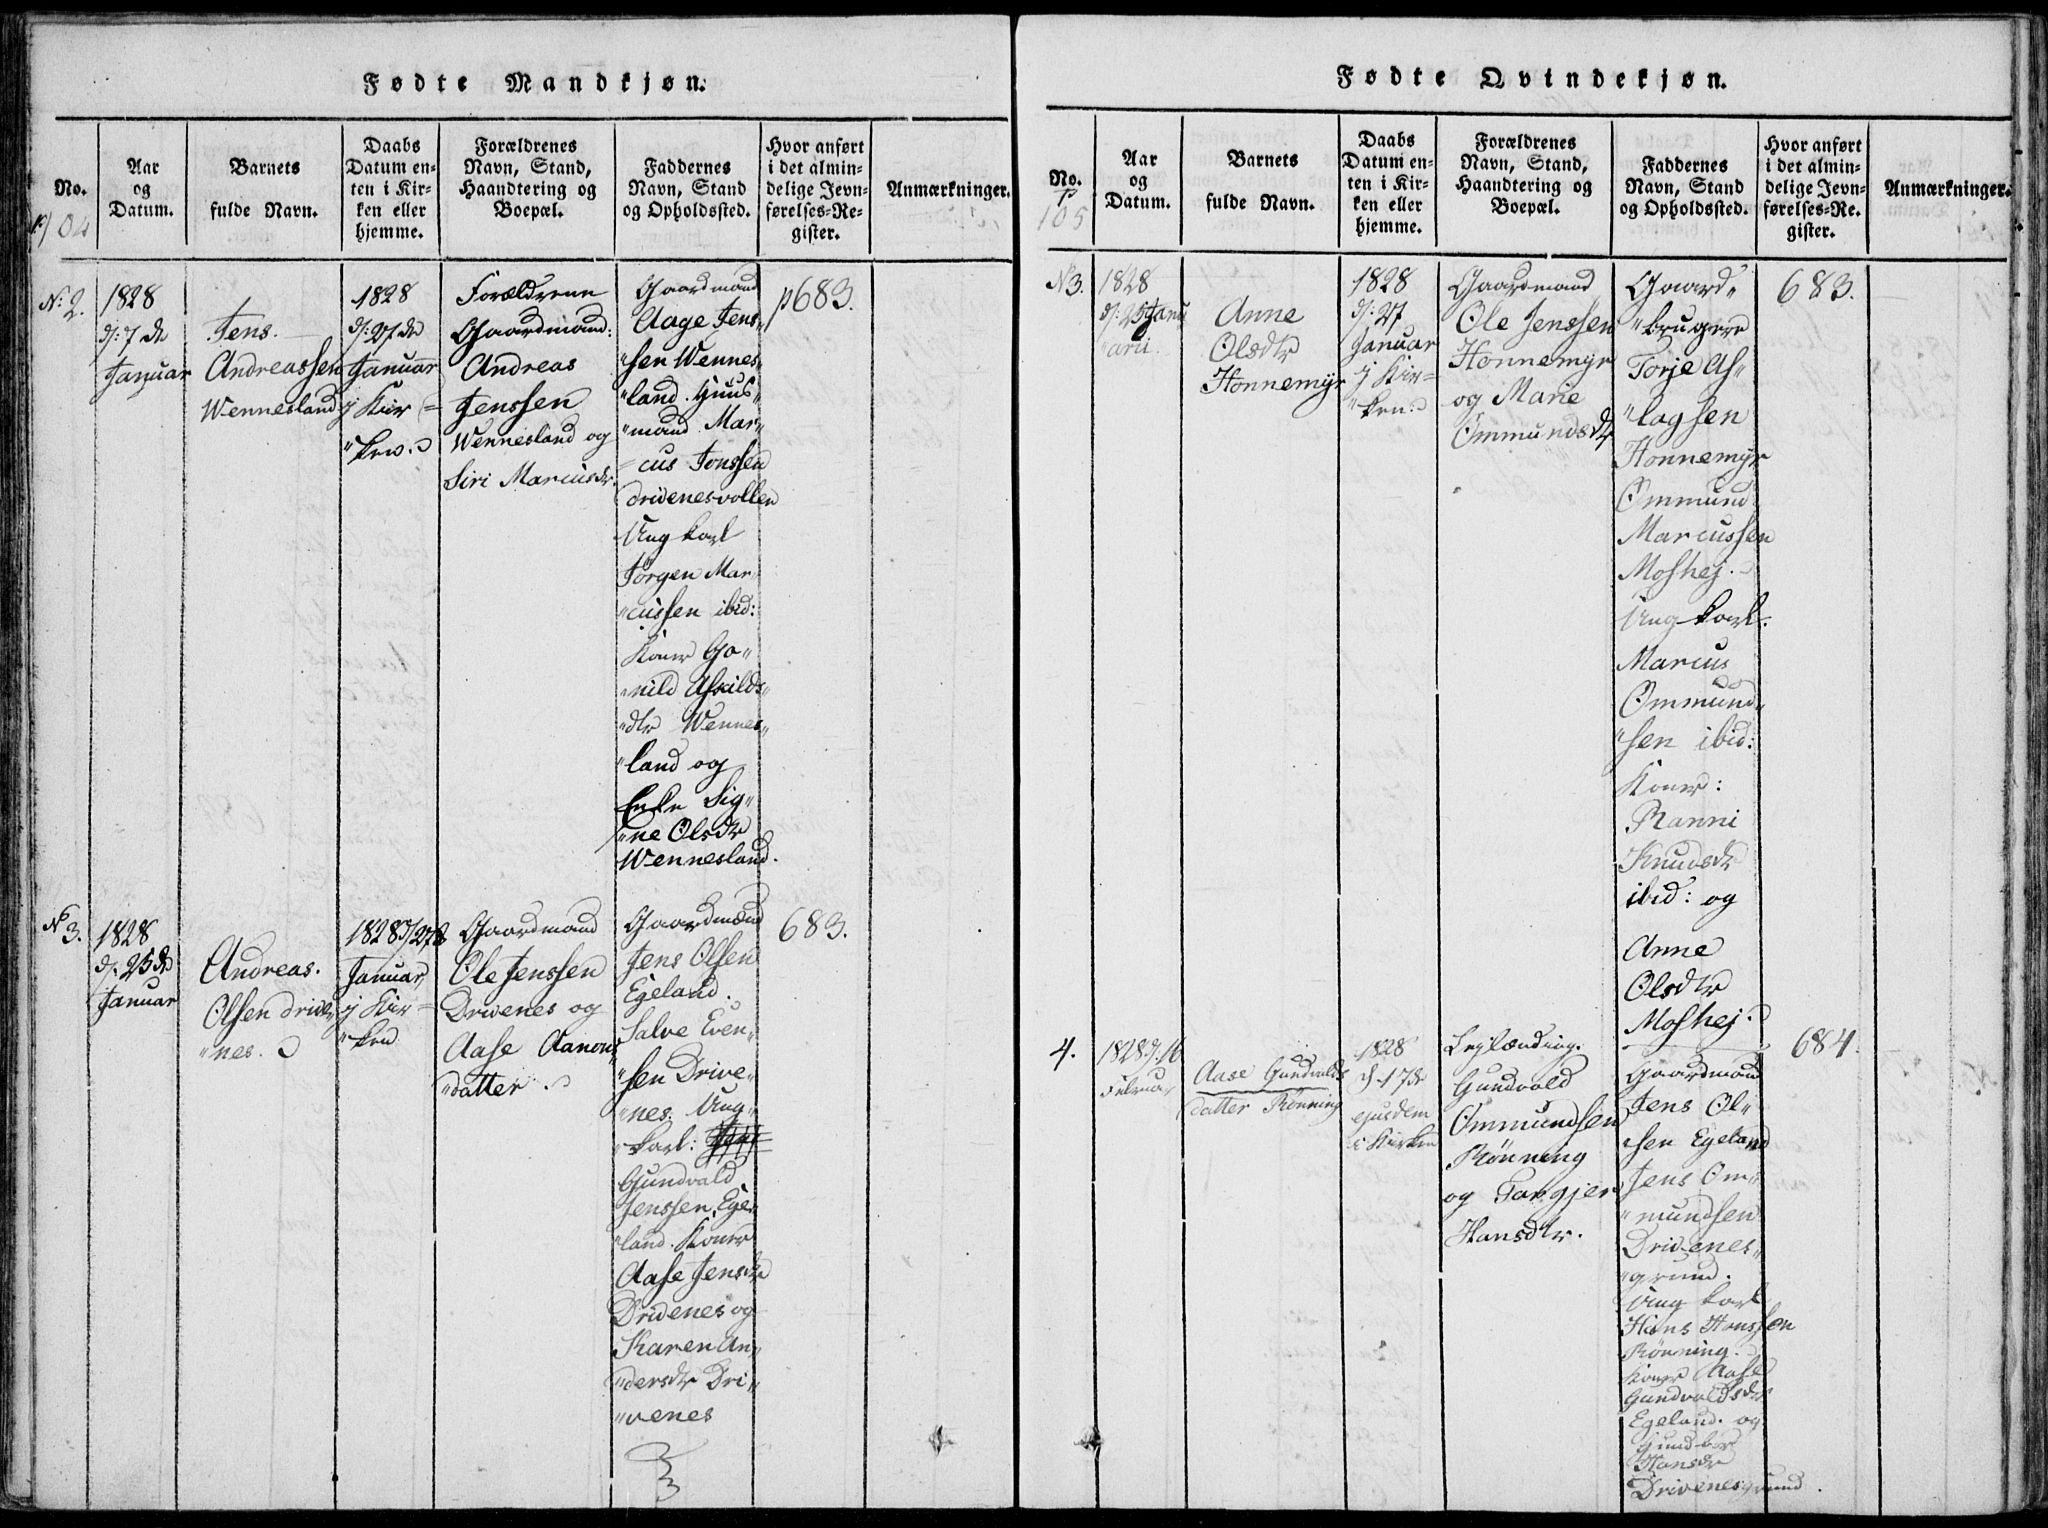 Fødte Mandkjøn.
No.
p 104
Aar
og
Datum.
Barnets
fulde Navn.
Daabs
Datum en-
ten i Kir-
ken eller
hjemme.
Forældrenes
Navn, Stand,
Haandtering og
Boepæl.
Faddernes
Navn, Stand
og Opholdssted.
Hvor anført
i det almin-
delige Jevn-
førelses-Re-
gister.
Anmærkninger.
No 2.
1828
d: 7 de
Januar
Jens
Andreassen
Wennesland
1828
d: 27 de
Januar
i Kir=
"ken.
Forældrene
Gaardmand:
Andreas
Jenssen
Wennesland og
Siri Marcusdr.
Gaardmand
Aage Jens"
"sen Wennes"
"land. Huus"
"mand Mar"
=cus Jonssen
Drivenesvollen
Ung karl
Jörgen Mar"
"cussen ibid:
Koner Go"
"nild Askilds"
"dtr Wennes"
"land og
Enke Sig"
"ne Olsdtr
Wennesland.
p 683.
No 3.
1828
d. 25 de
Januar
Andreas.
Olsen Drive"
"nes.
1828 d/27 de
Januar
i Kir=
"ken
Gaardmand
Ole Jenssen
Drivenes og
Aase Aanons
"datter.
Gaardmænd
Jens Olsen
Egeland.
Salve Even"
"sen Drive"
"nes. Ung"
"karl:
Gundvald
Jenssen Ege"
"land. Koner
Aase Jensdtr
Drivenes og
Karen An"
"dersdtr Dri"
"venes
683.
Fødte Qvindekjøn.
No.
p
105
Aar
og
Datum.
Barnets
fulde Navn.
Daabs
Datum en-
ten i Kir-
ken eller
hjemme.
Forældrenes
Navn, Stand,
Haandtering og
Boepæl.
Faddernes
Navn, Stand
og Opholdssted.
Hvor anført
i det almin-
delige Jevn-
førelses-Re-
gister.
Anmærkninger.
No 3.
1828
d: 25 Janu
"arii.
Anne
Olsdtr
Honnemyr
1828
d: 27
Januar
i Kir=
"ken.
Gaardmand
Ole Jenssen
Honnemyr
og Marie
Ommundsdtr
Gaard"
"brugere
Torje As"
"lagsen
Honnemyr
Ommund
Marcussen
Moshej.
Ung karl.
Marcus
Ommund"
"sen ibid:
Koner:
Ranni
Knudsdtr
ibid: og
Anne
Olsdtr
Moshej.
683.
4.
1828 d. 16
Februar
Aase Gundvalds
datter Rönning
1828
d 17 de
ejusdem
i Kirken
Lejlænding.
Gundvald
Ommundsen
Rönning
og Targjer
Hansdtr.
Gaardmænd
Jens Ol"
"sen Egeland
Jens Om"
"mundsen
Drivenes"
"grund.
Ung karl
Hans Hanssen
Rönning.
Koner Aase
Gundvaldsdtr
Egeland. og
Gundbor
Hansdtr
Drivenesgrund.
684.